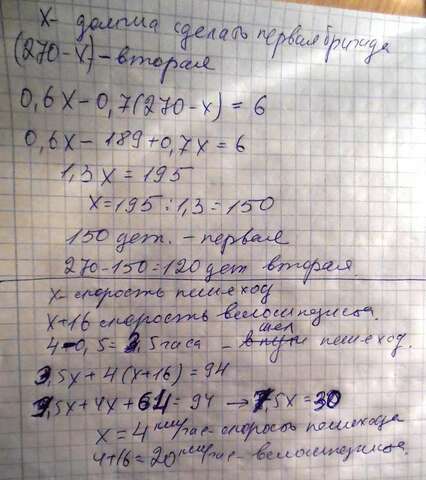 х - должна сделать первая бригада
(270-х) - вторая
0,6х - 0,7(270-х) = 6
0,6х - 189 + 0,7х = 6
1,3х = 195
х = 195 : 1,3 = 150
150 дет. - первая
270 - 150 = 120 дет вторая.
х - скорость пешеход
х+16 скорость велосипедиста.
4 - 0,5 = 3,5 часа - шел пешеход.
3,5х + 4(х+16) = 94
3,5х + 4х + 64 = 94 → 7,5х = 30
х = 4 км/час - скорость пешехода
4+16 = 20 км/час - велосипедиста.